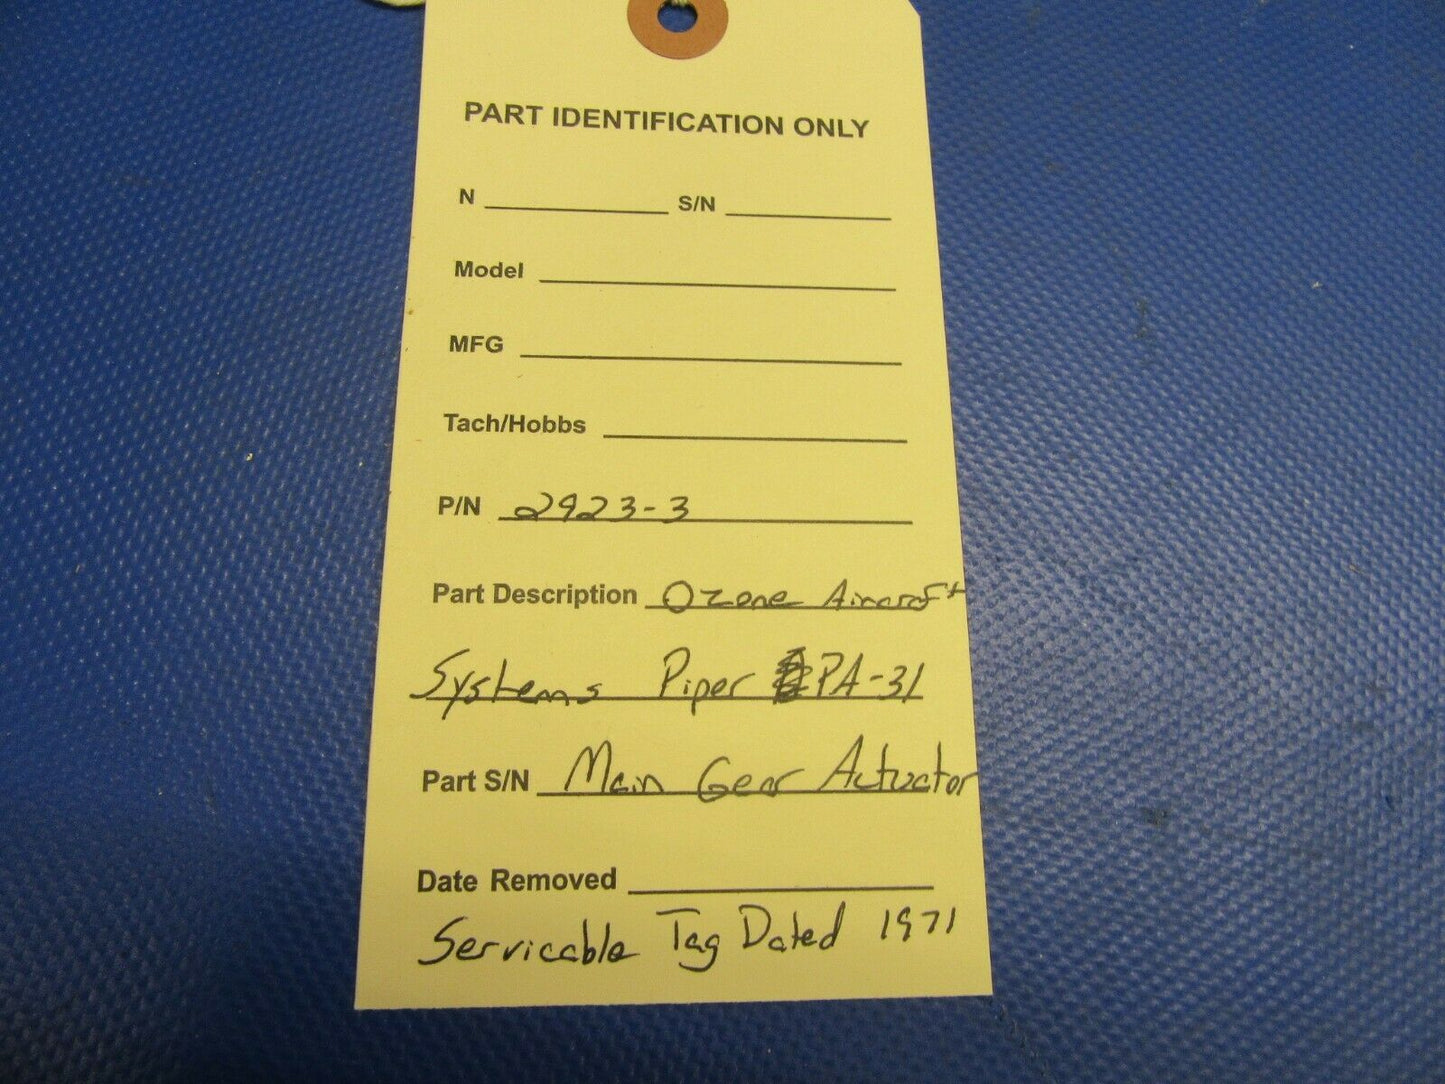 PART IDENTIFICATION ONLY
N S/N
Model
MFG
Tach/Hobbs
P/N 2923-3
Part Description Ozone Aircraft
Systems Piper PA-31
Part S/N Main Gear Actuator
Date Removed
Servicable Tag Dated 1971